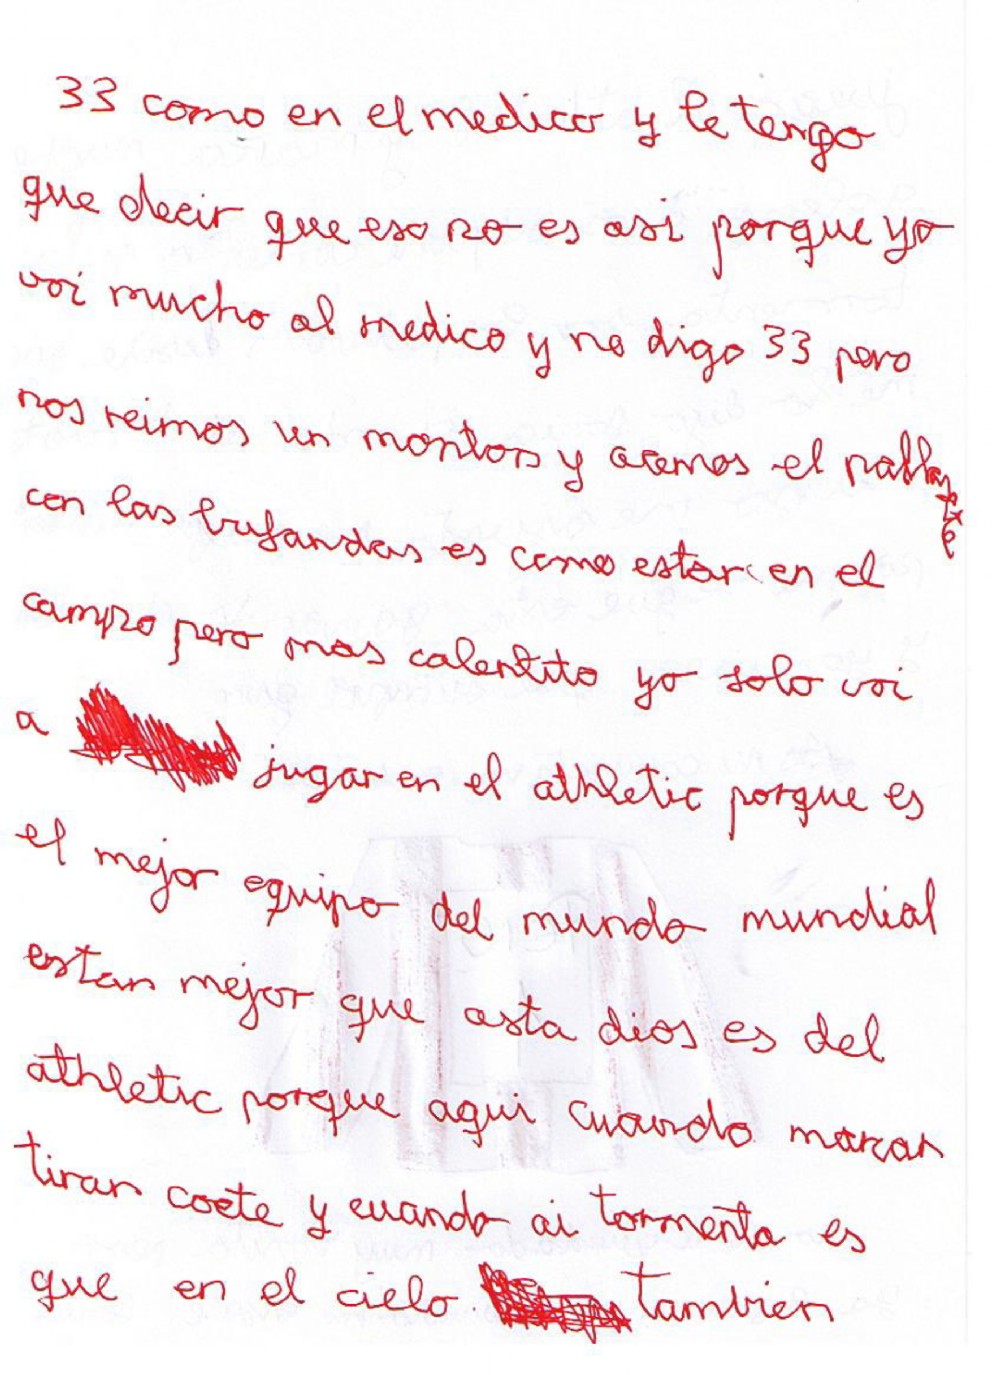 33 como en el medico y le tengo
que decir que eso no es asi porque yo
voi mucho al medico y no digo 33 pero
nos reimos un monton y acemos el
con las bufandas es como estar en el
campo pero mas calentito yo solo voi
a jugar en el athletic porque es
el mejor equipo del mundo mundial
estan mejor que asta dios es del
athletic porque aqui cuando marcan
tiran coete y cuando ai tormenta es
que en el cielo tambien